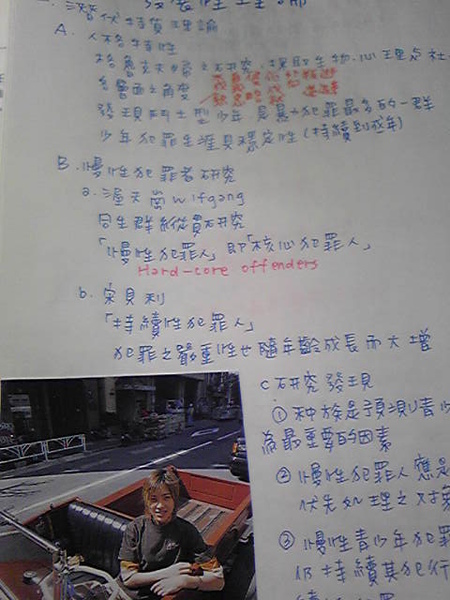 一、潛伏特質理論
A. 人格特性
格魯克夫婦之研究,採取生物.心理与社
各層面之角度
發現鬥士型少年 易是犯罪最多的一群
少年犯罪生涯具穩定性(持續到成年)
B. 慢性犯罪者研究
a. 渥夫岡 Wolfgang
同生群縱貫研究
「慢性犯罪人」即「核心犯罪人」
Hard-core offenders
b. 宋貝利
「持續性犯罪人」
犯罪之嚴重性也隨年齡成長而大增
c 研究發現
① 種族是預測青少
為最重要的因素
② 慢性犯罪人應是
優先處理之對象
③ 慢性青少年犯罪
仍持續其犯行